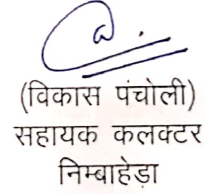 (विकास पंचोली)
सहायक कलक्टर
निम्बाहेड़ा